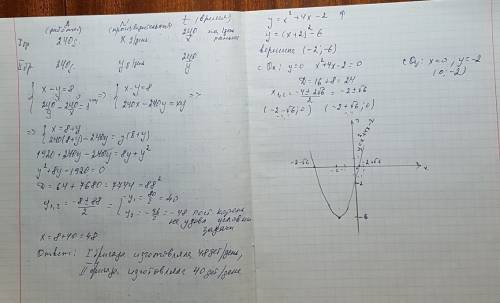 A
(работа)
N
(производительность)
t (время)
I бр
240g.
x g/день
240/x
на 1 день раньше
II бр
240g.
y g/день
240/y
{ x-y=8
240/y - 240/x = 1
=> { x-y=8
240x-240y=xy =>
=> { x=8+y
240(8+y)-240y=y(8+y)
1920+240y-240y=8y+y²
y²+8y-1920=0
D=64+7680=7744=88²
y₁,₂ = (-8±88)/2 = [ y₁=80/2=40
y₂=-96/2=-48 пост. корень
не удовл. условию
задачи
x=8+40=48
Ответ: I бригада изготовляла 48 дет/день,
II бригада изготовляла 40 дет/день
y=x²+4x-2
y=(x+2)²-6
вершина (-2;-6)
с Ox: y=0 x²+4x-2=0
с Oy: x=0, y=-2
(0;-2)
D=16+8=24
x₁,₂ = (-4±2√6)/2 = -2±√6
(-2-√6;0) (-2+√6;0)
y
y=x²+4x-2
-2-√6
-2
-2+√6
x
-2
-6